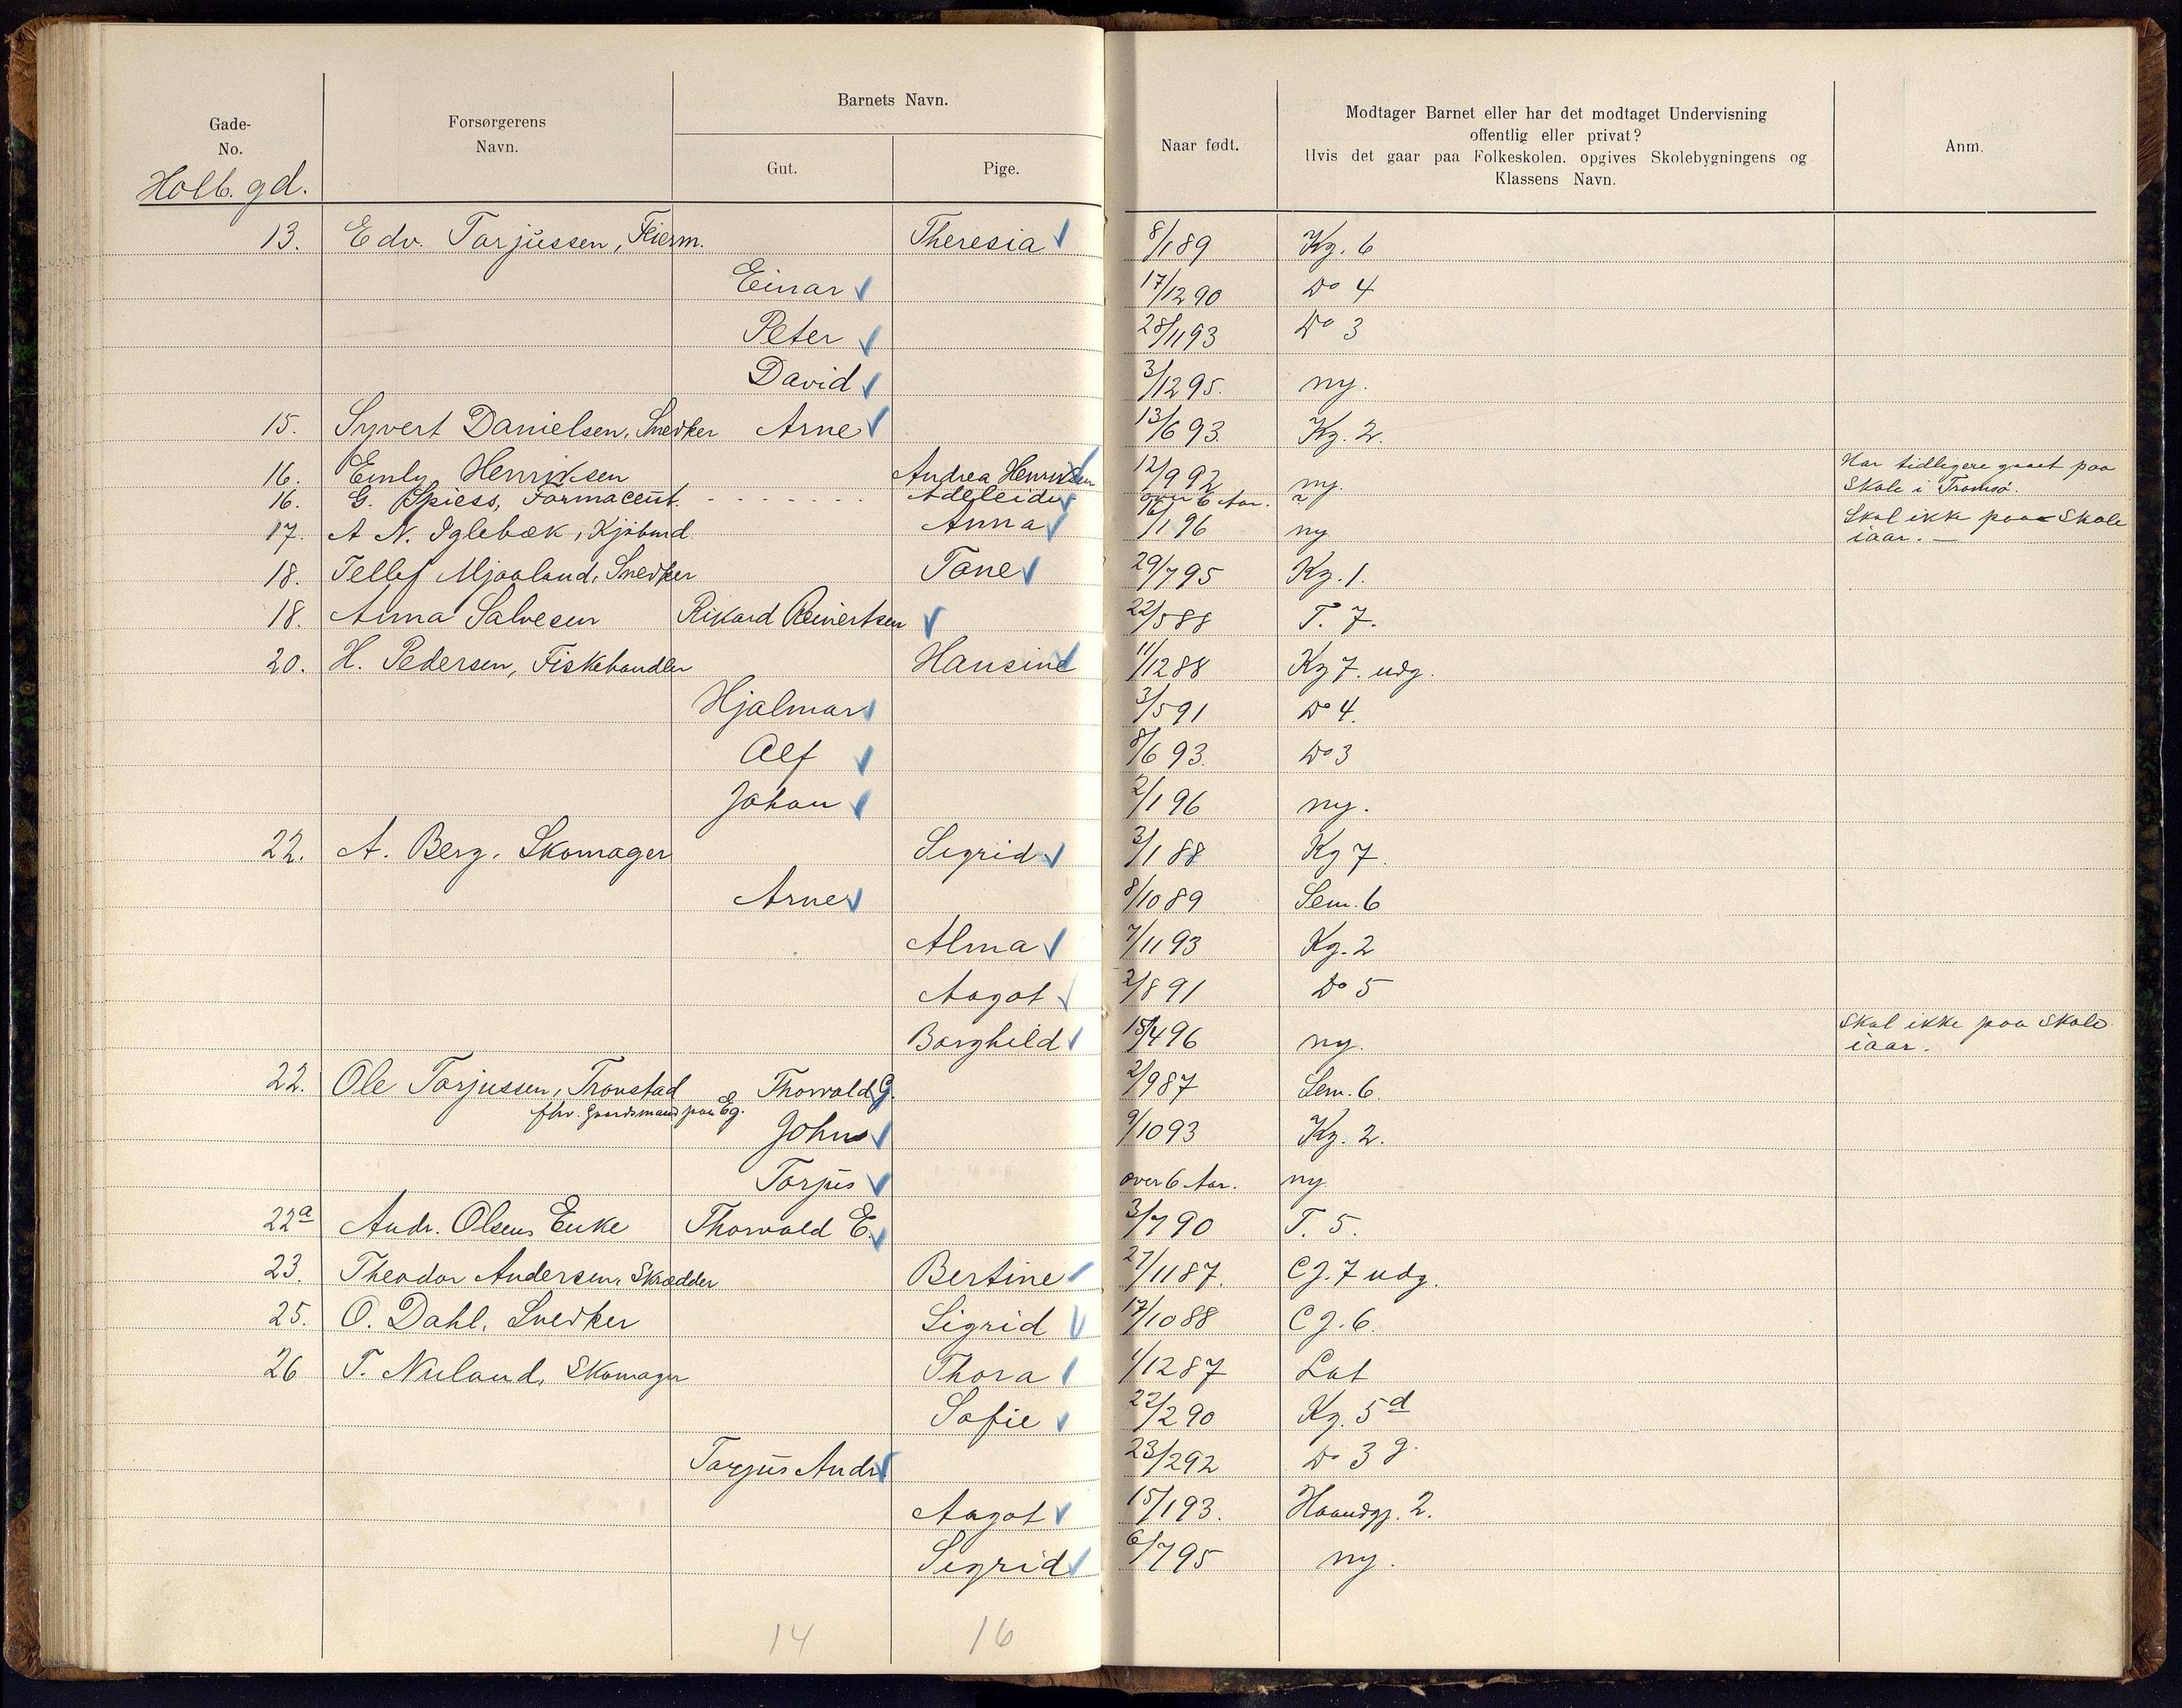 Gade-
No.
Forsørgerens
Navn.
Barnets Navn.
Gut.
Pige.
Naar født.
Modtager Barnet eller har det modtaget Undervisning
offentlig eller privat?
Hvis det gaar paa Folkeskolen, opgives Skolebygningens og
Klassens Navn.
Anm.
Holb. gd.
13. Edv. Tarjussen, Theresia 8/1 89 Kg. 6
Einar 17/12 90 Do 4
Peter 28/11 93 Do 3
David 3/12 95. ny.
15. Syvert Danielsen, Snedker Arne 13/6 93. Kg. 2.
16. Emly Henriksen Andrea Henriksen 12/9 92 ny. Har tidligere gaaet paa
Skole i Tromsø.
16. G. Spiess, Farmaceut. Adeleide over 6 Aar. ?
17. A N. Iglebæk, Kjøbmd. Anna /1 96 ny Skal ikke paa Skole
iaar. —
18. Tellef Mjaaland, Snedker Tane 29/7 95 Kg. 1.
18. Anna Salvesen Rikard Reinertsen 22/5 88 T. 7.
20. H. Pedersen, Fiskehandler Hansine 11/12 88 Kg 7. udg.
Hjalmar 3/5 91 Do 4.
Alf 8/6 93. Do 3
Johan 2/1 96 ny.
22. A. Berg. Skomager Sigrid 3/1 88 Kg 7
Arne 8/10 89 Sem. 6
Alma 7/11 93 Kg. 2
Aagot 2/8 91 Do 5
Borghild 15/4 96 ny. Skal ikke paa Skole
iaar.
22. Ole Tarjussen, Tronstad Thorvald G. 2/9 87 Sem. 6.
fhv. Gaardsmand paa Eg.
John 9/10 93 Kg. 2.
Tarjus over 6 Aar. ny.
22a Andr. Olsens Enke Thorvald E. 3/7 90 T. 5.
23. Theodor Andersen, Skrædder Bertine 27/11 87. CJ. 7 udg.
25. O. Dahl. Snedker Sigrid 17/10 88 CJ. 6.
26 T. Nuland, Skomager Thora 1/12 87 Lat
Sofie 22/2 90 Kg. 5d
Tarjus Andr 23/2 92 Do 3 g.
Aagot 15/1 93. Haandgj. 2.
Sigrid 6/7 95 ny.
14 16